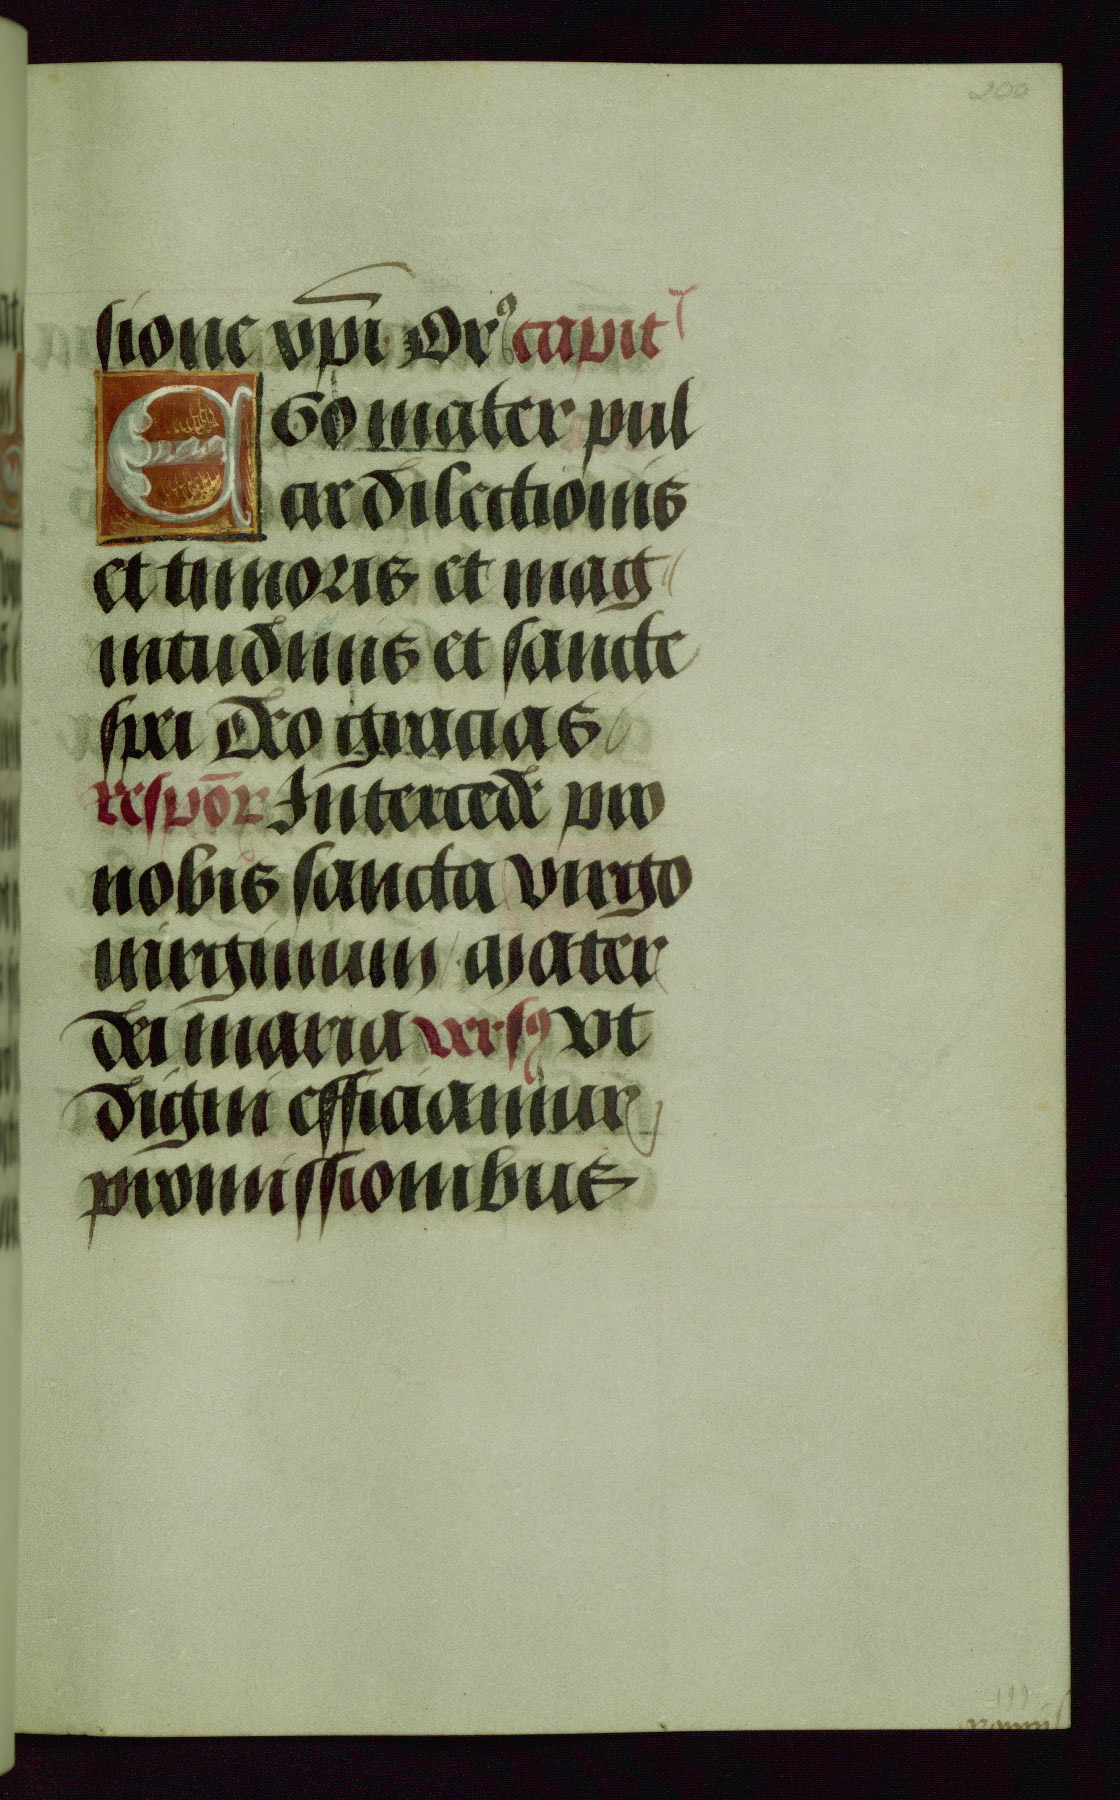 200
sione xp̄i Or capit
Ego mater pul
cr dilectionis
et timoris et mag
nitudinis et sancte
spei Deo gracias
respōr Intercede pro
nobis sancta virgo
uirginum Mater
dei maria versꝰ Vt
digni efficiamur
promissionibus
199